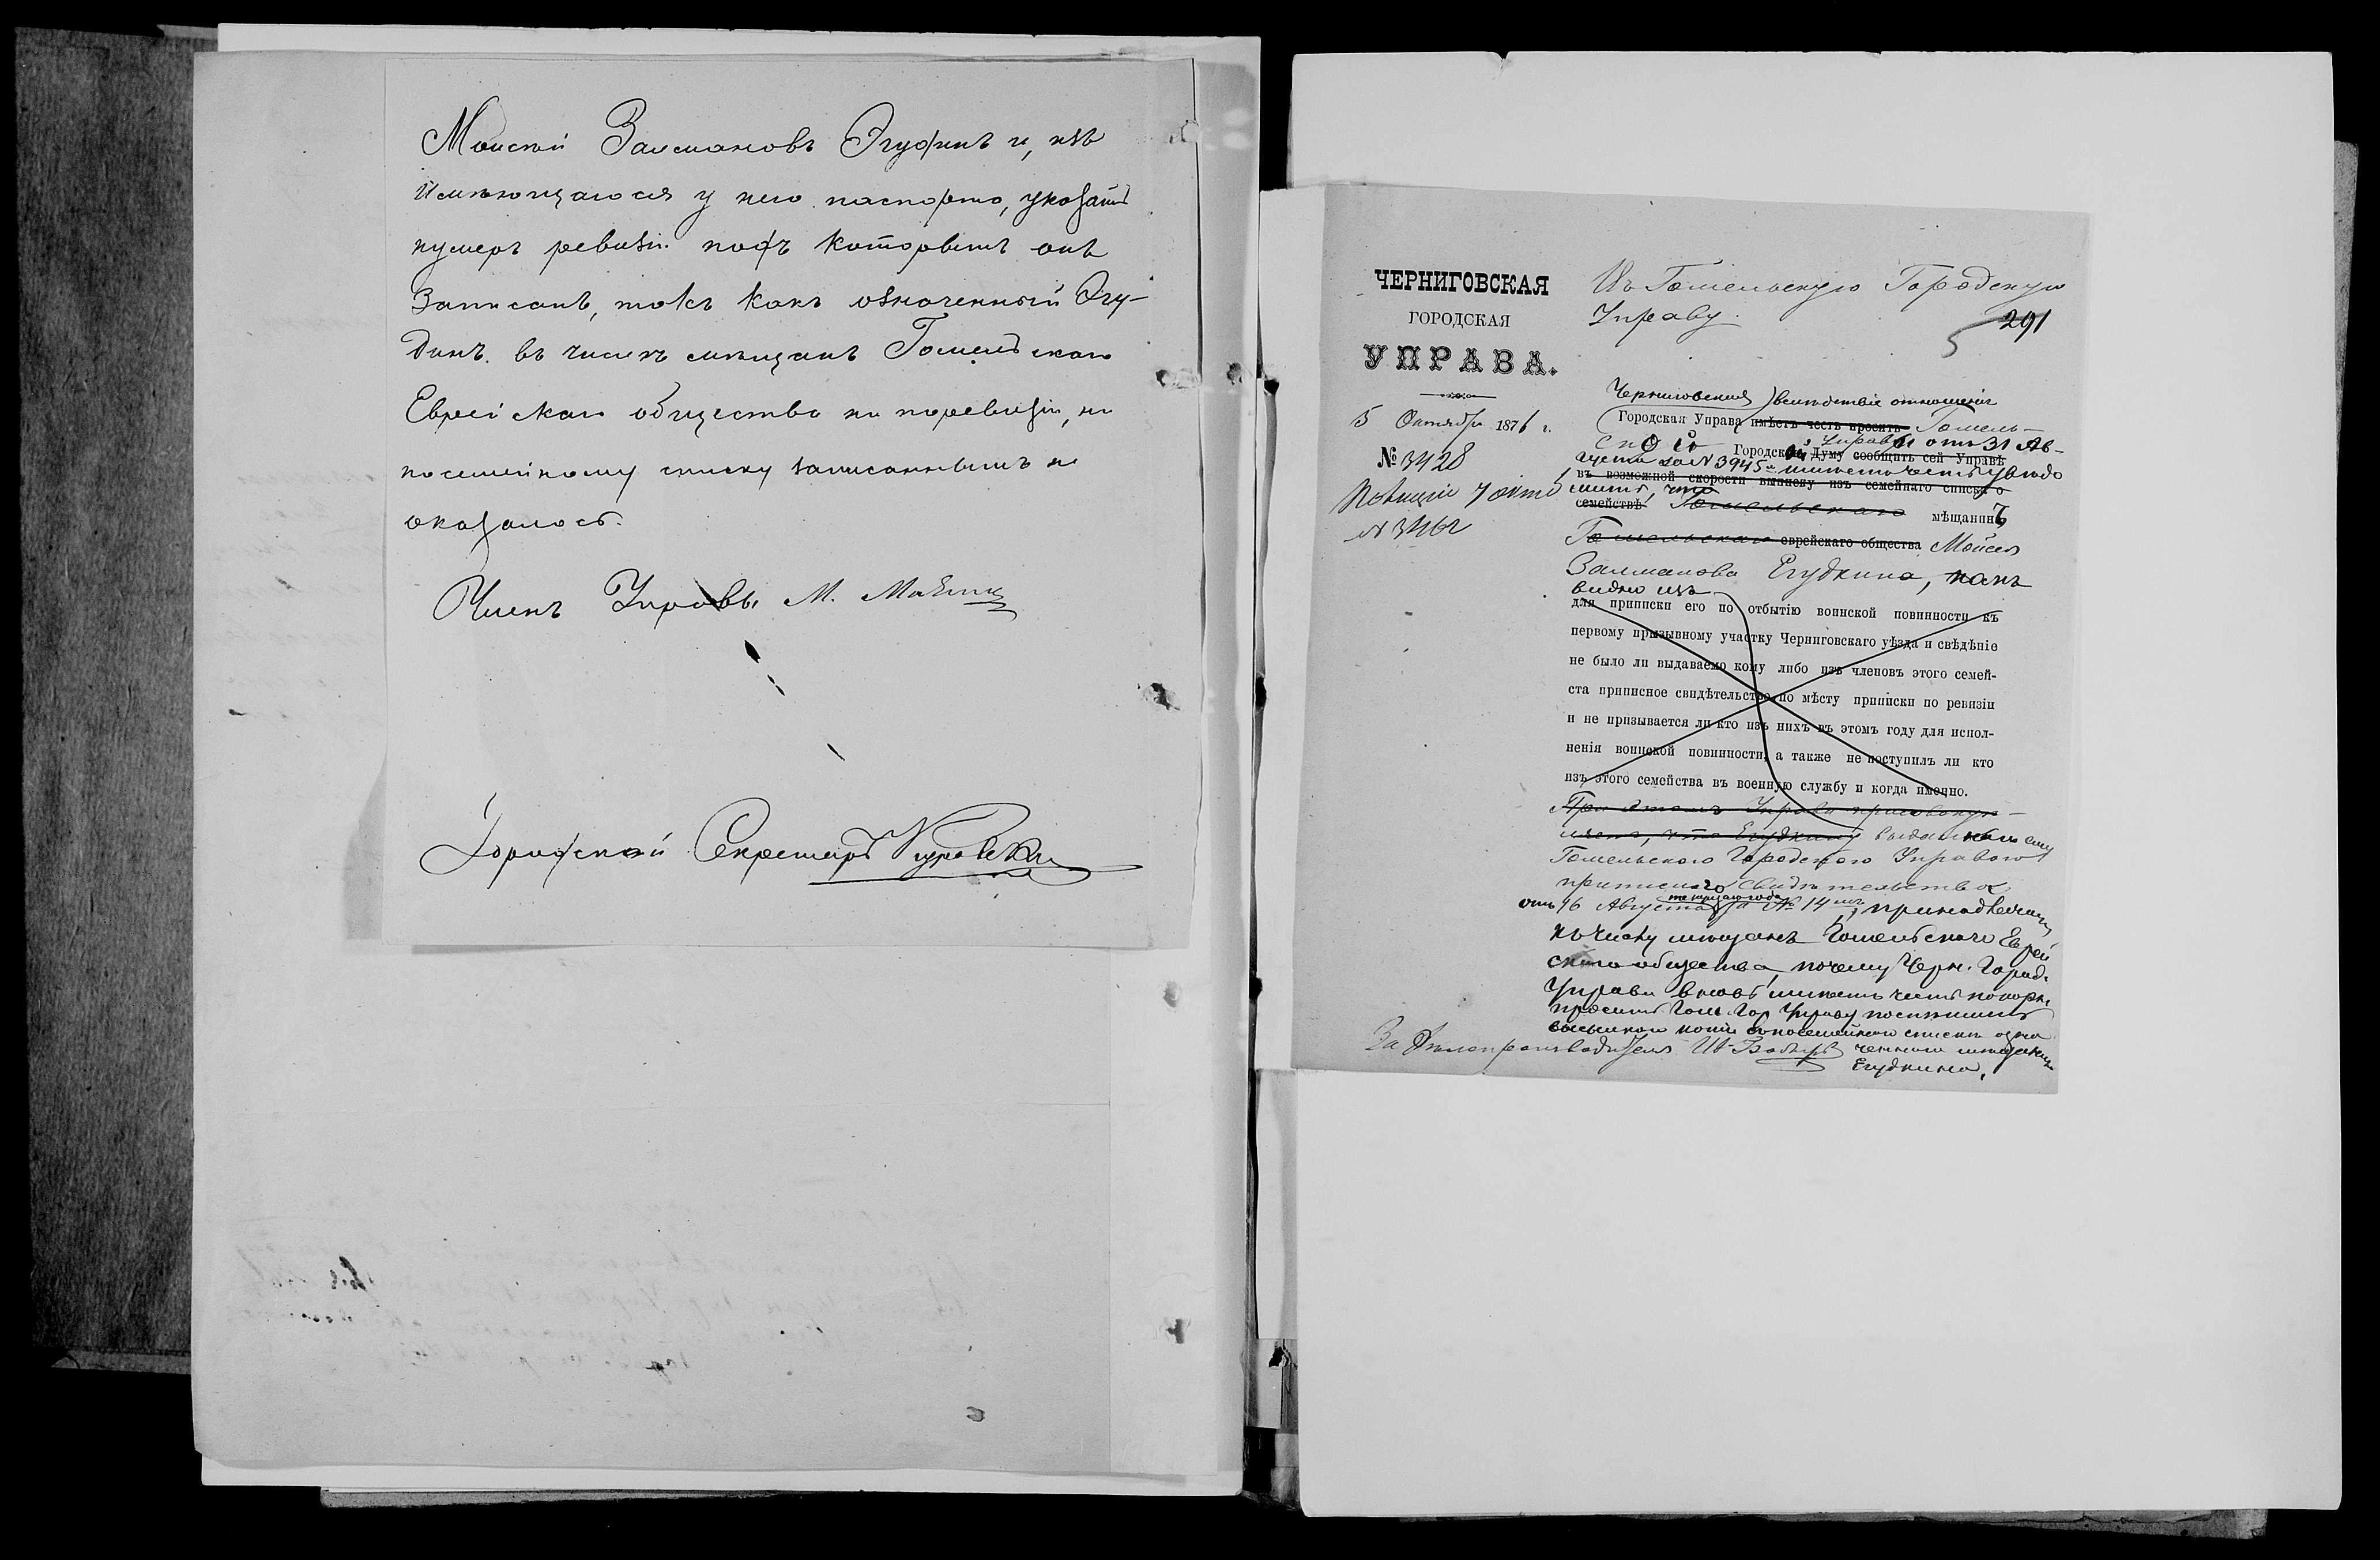 Моисей Залмановъ Эгудинъ и, изъ
имѣющагося у него паспорта, указать
нумеръ ревизіи подъ которымъ онъ
Записанъ, такъ какъ означенный Эгу-
динъ въ числѣ мѣщанъ Гомельскаго
Еврейскаго общества ни по ревизіи, ни
посемейному списку записаннымъ не
оказалось.
Членъ Управы М.
Городской Секретарь
ЧЕРНИГОВСКАЯ
ГОРОДСКАЯ
УПРАВА.
5 Октября 1876 г.
№ 3428
7 окт
№ 3462
Въ Гомельскую Городскую
Управу.
291
5
Черниговская вслѣдствіе отношенія
Городская Управа имѣетъ честь просить Гомель-
ской Городской Думу сообщить сей Управѣ Управы отъ 31 Ав-
густа за № 3945 имѣетъ честь увѣдо
въ возможной скорости выписку изъ семейнаго списка о
мить, что
семействѣ Гомельскаго мѣщанинъ
Гомельскаго еврейскаго общества Мойсея
Залманова Егудкина, какъ
видно изъ
для приписки его по отбытію воинской повинности къ
первому призывному участку Черниговскаго уѣзда и свѣдѣніе
не было ли выдаваемо кому либо изъ членовъ этого семей-
ста приписное свидѣтельство по мѣсту приписки по ревизіи
и не призывается ли кто изъ нихъ въ этомъ году для испол-
ненія воинской повинности, а также не поступилъ ли кто
изъ этого семейства въ военную службу и когда именно.
При этомъ Управа присовокуп-
ляетъ, что Егудкину выданнаго ему
Гомельскою Городскою Управою
приписнаго свидѣтельства
текущаго года
отъ 16 Августа за № 14, принадлежитъ
къ числу мѣщанъ Гомельскаго Еврей
скаго общества, почему Черн. Город.
Управа вновь имѣетъ честь покорн.
просить Гом. Гор. Управу поспѣшить
высылкою копіи съ посемейнаго списка озна
ченнаго мѣщанина
Егудкина.
За Дѣлопроизводителя